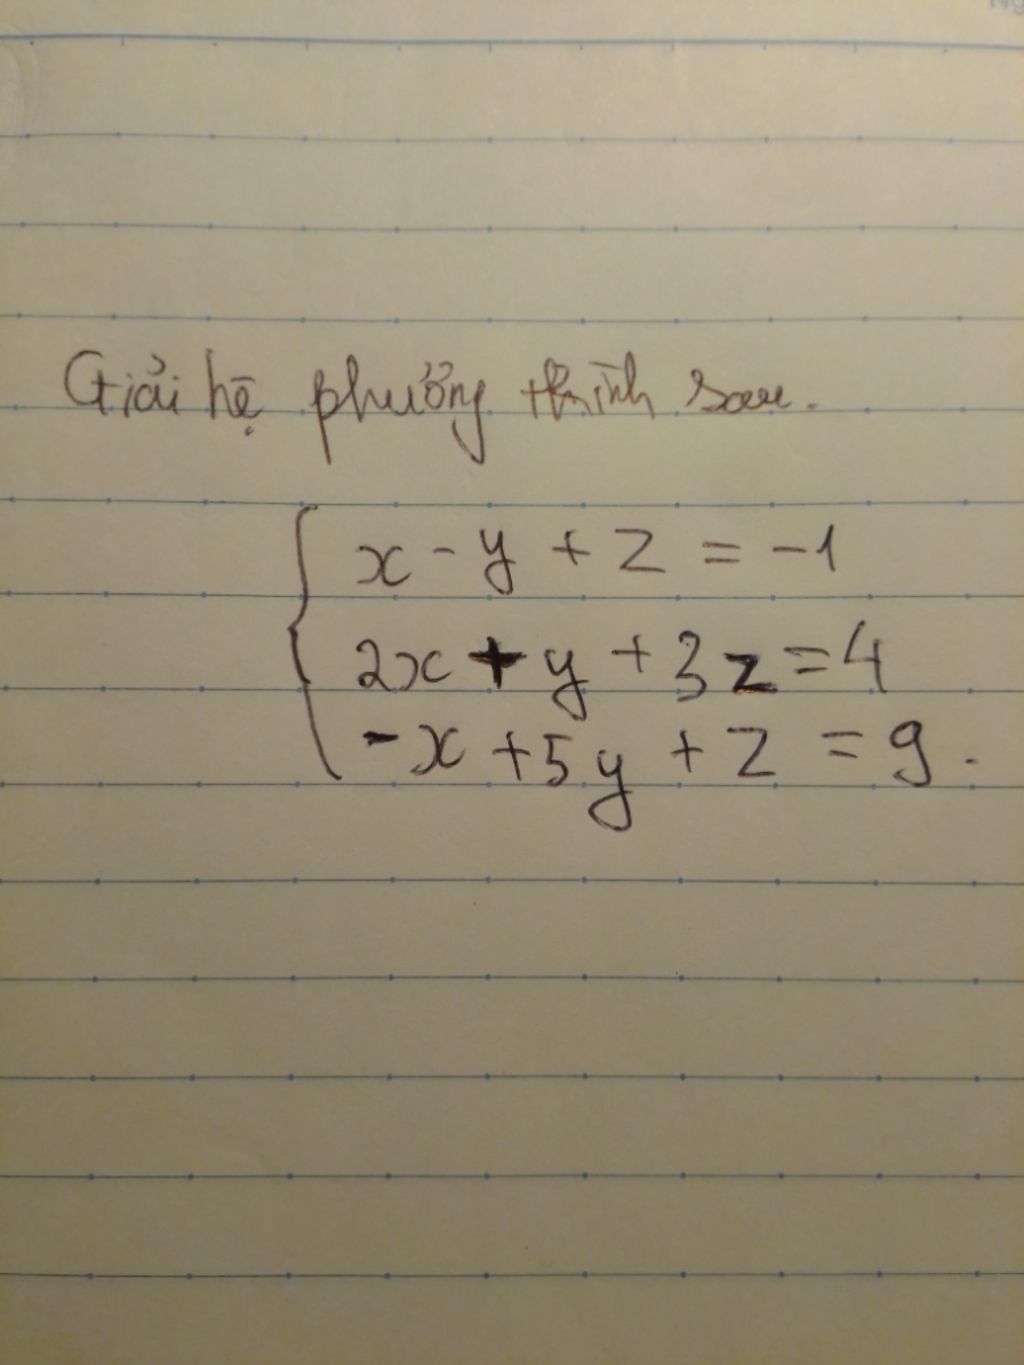 Giải hệ phưởng thình sau.
x - y + z = -1
2x + y + 3z = 4
-x + 5y + z = 9.